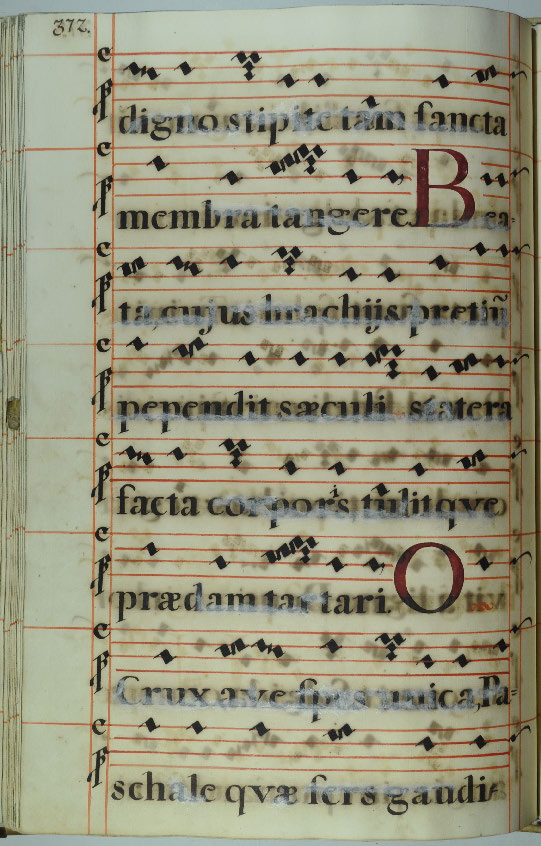 372.
digno stipite tam sancta
membra tangere. Bea-
ta, cujus brachijs pretiũ
pependit sæculi statera
facta corporis, tulitqve
prædam tartari. O
Crux ave spes unica, Pa-
schale qvæ fers gaudi